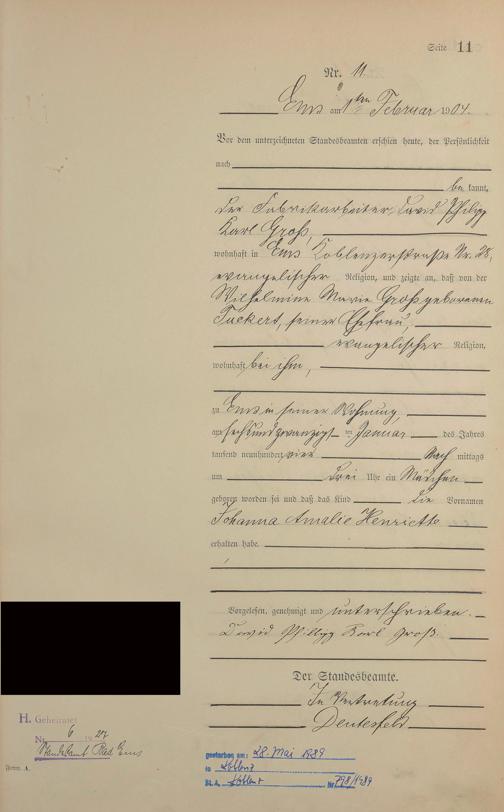 Seite 11
Nr. 11
Ems am 1ten Februar 1904.
Vor dem unterzeichneten Standesbeamten erschien heute, der Persönlichkeit
nach
be kannt,
der Fabrikarbeiter David Philipp
Karl Groß,
wohnhaft in Ems Koblenzerstraße Nr. 28,
evangelischer Religion, und zeigte an, daß von der
Wilhelmine Marie Groß geborenen
Tackert, seiner Ehefrau,
evangelischer Religion,
wohnhaft bei ihm,
zu Ems in seiner Wohnung,
am sechsundzwanzigsten Januar des Jahres
tausend neunhundert vier Nach mittags
um drei Uhr ein Mädchen
geboren worden sei und daß das Kind die Vornamen
Johanna Amalie Henriette
erhalten habe.
Vorgelesen, genehmigt und unterschrieben.
David Philipp Karl Groß.
Der Standesbeamte.
In Vertretung
H. Geheiratet
Nr. 6 1927
Standesamt Bad Ems
Form. A.
gestorben am: 28. Mai 1989
in Koblenz
St. A. Koblenz Nr. 798/1989